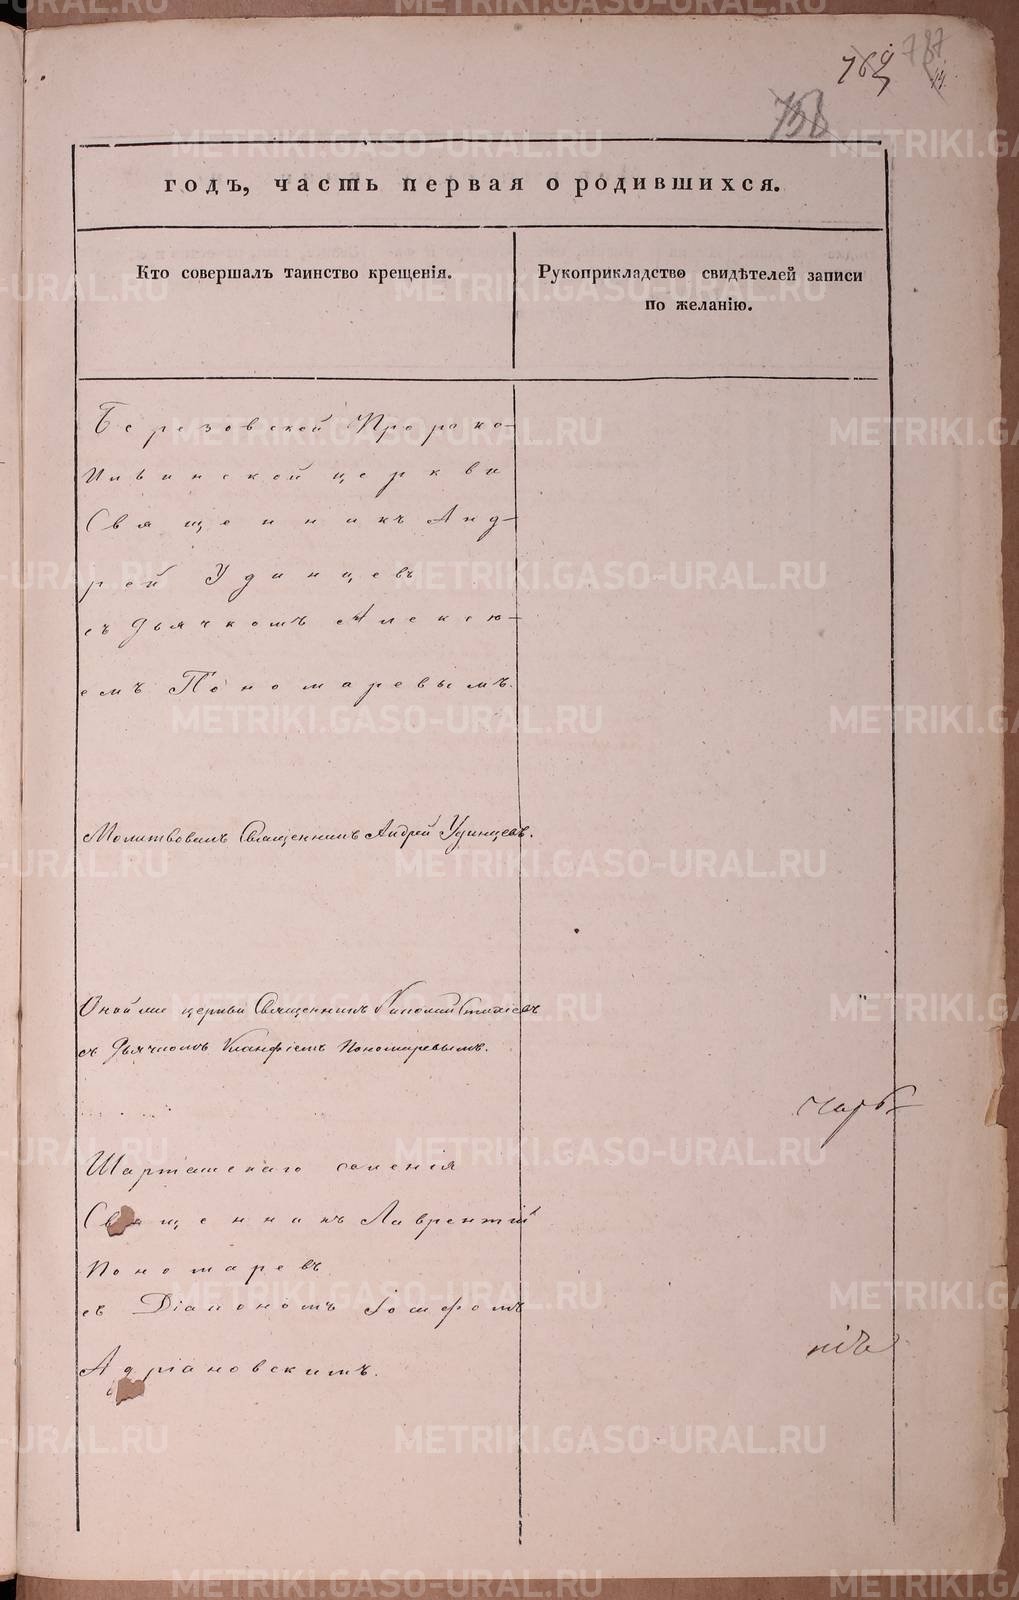 787
769
14.
758
годъ, часть первая о родившихся.
Кто совершалъ таинство крещенія.
Рукоприкладство свидѣтелей записи
по желанію.
Березовской Пророко-
Ильинской церкви
Священникъ Анд-
рей Удинцевъ
съ дьячкомъ Алексѣ-
емъ Пономаревымъ.
Молитвовалъ Священникъ Андрей Удинцевъ.
Оной же церкви Священникъ
съ Дьячкомъ Пономаревымъ.
Шарташскаго селенія
Священникъ Лаврентій
Пономаревъ
съ Діакономъ Іосифомъ
Адріановскимъ.
METRIKI.GASO-URAL.RU